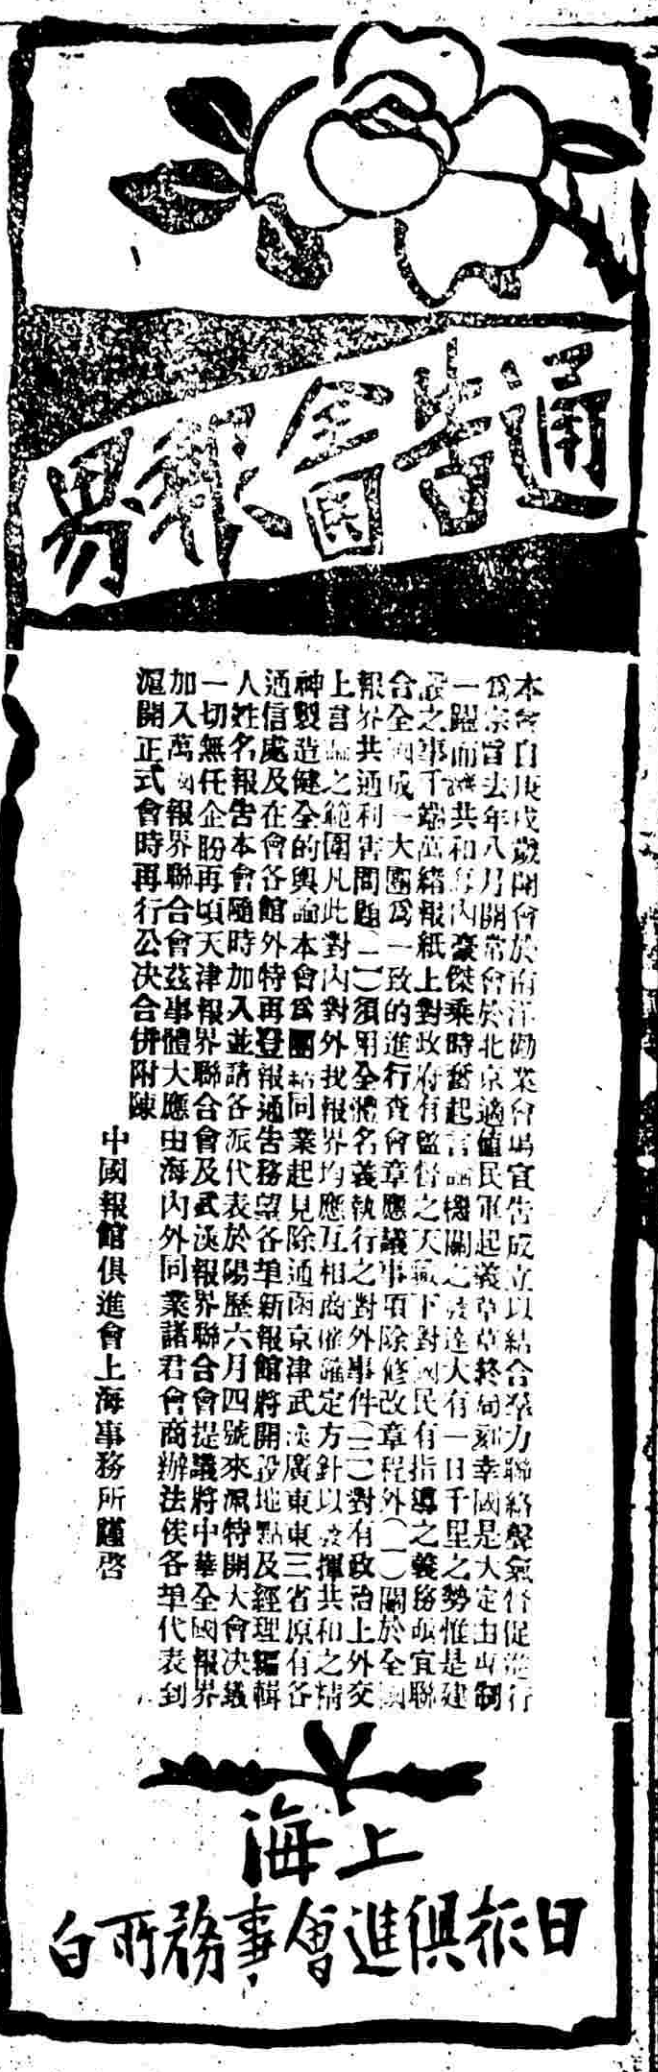 通告全國報界
本會自庚戌歲開會於南洋勸業會塲宣告成立以結合羣力聯絡聲氣督促進行
爲宗旨去年八月開常會於北京適値民軍起義草草終局刻幸國是大定由專制
一躍而躋共和海內豪傑乘時奮起言論機關之發達大有一日千里之勢惟是建
設之事千端萬緒報紙上對政府有監督之天職下對國民有指導之義務亟宜聯
合全國成一大團爲一致的進行查會章應議事項除修改章程外(一)關於全國
報界共通利害問題(二)須用全體名義執行之對外事件(三)對有政治上外交
上言論之範圍凡此對內對外我報界均應互相商催確定方針以發揮共和之精
神製造健全的輿論本會爲團結同業起見除通函京津武漢廣東東三省原有各
通信處及在會各館外特再登報通告務望各埠新報館將開設地點及經理編輯
人姓名報告本會隨時加入並請各派代表於陽歷六月四號來滬特開大會决議
一切無任企盼再頃天津報界聯合會及武漢報界聯合會提議將中華全國報界
加入萬國報界聯合會茲事體大應由海內外同業諸君會商辦法俟各埠代表到
滬開正式會時再行公决合併附陳
中國報館俱進會上海事務所謹啓
上海
日報俱進會事務所白